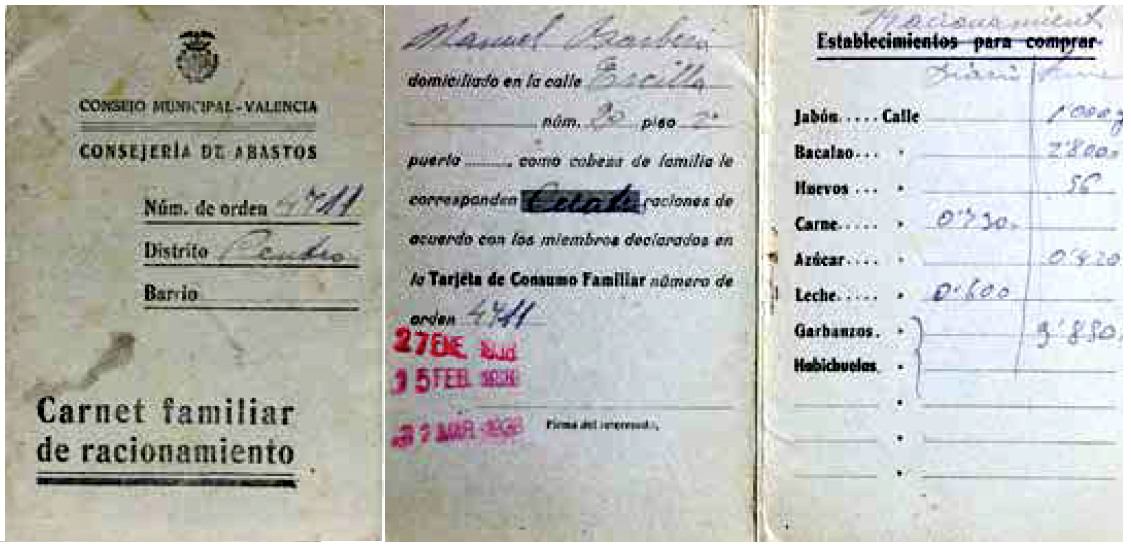 CONSEJO MUNICIPAL-VALENCIA
CONSEJERÍA DE ABASTOS
Núm. de orden 4711
Distrito Centro
Barrio
Carnet familiar
de racionamiento
Manuel
domiciliado en la calle
núm. 20 piso 2º
puerta ........, como cabeza de familia le
corresponden raciones de
acuerdo con los miembros declarados en
la Tarjeta de Consumo Familiar número de
orden 4711
27 ENE 1938
15 FEB 1938
MAR 1938
Firma del interesado,
Racionamiento
Establecimientos para comprar
Diario
Jabón.... Calle 1'000 g
Bacalao... " 2'800
Huevos ... " 56
Carne..... " 0'730
Azúcar.... " 0'420
Leche..... " 0'600
Garbanzos. " 9'880
Habichuelas. "
"
"
"